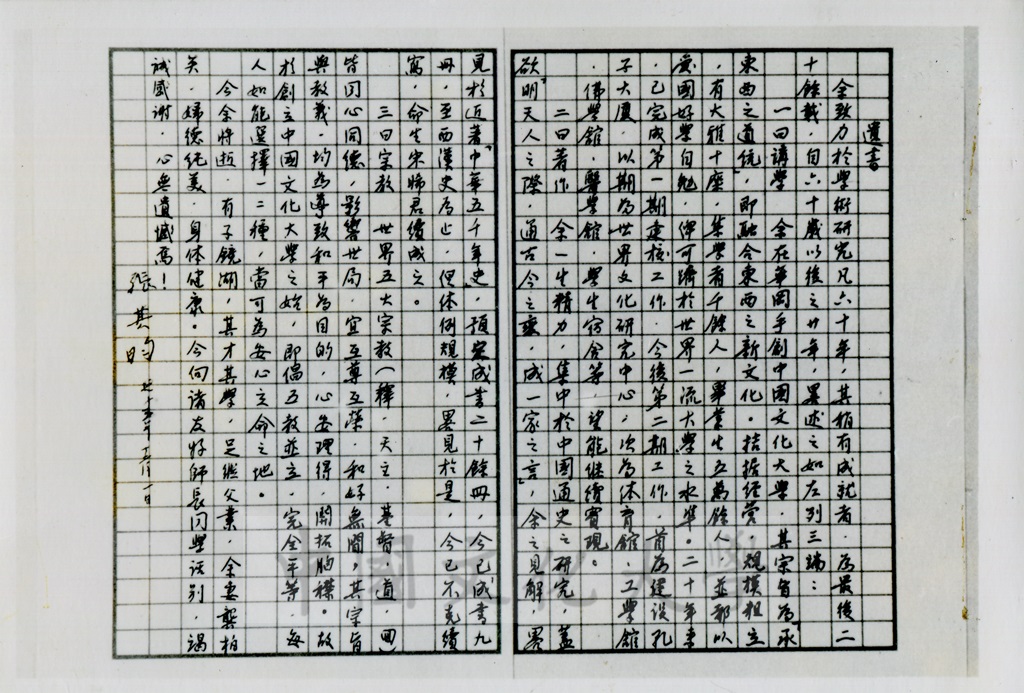 遺書
余致力於學術研究凡六十年，其稍有成就者，為最後二
十餘載，自六十歲以後之廿年，畧述之如左列三端：
一曰講學　余在華岡手創中國文化大學，其宗旨為「承
東西之道統」，即融合東西之新文化。拮据經營，規模粗立
，有大雅十座，集學者千餘人，畢業生五萬餘人，並部以
愛國好學自勉，俾可躋於世界一流大學之水準。二十年來
，已完成第一期建校工作，今後第二期工作，首為建設孔
子大廈，以期為世界文化研究中心，次為体育館、工學館
、佛學館、醫學館、學生宿舍等，望能继續實現。
二曰著作　余一生精力，集中於中國通史之研究，盖
欲「明天人之際，通古今之變，成一家之言」，余之見解，畧
見於近著「中華五千年史」，預定成書二十餘冊，今已成書九
冊，至西漢史為止，但体例規模，畧見於是，今已不克續
寫，命生宋晞君續成之。
三曰宗教　世界五大宗教（釋、天主、基督、道、回
皆同心同德，影響世局，宜互尊互榮，和好無間，其宗旨
與教義，均為導致和平為目的，心安理得，開拓胸襟。故
於創立中國文化大學之始，即倡五教並立，完全平等，每
人如能選擇一二種，當可為安心立命之地。
今余將逝，有子鏡湖，其才其學，足继父業，余妻龔柏
英，婦德純美，身体健康。今向諸友好師長同學話別，竭
誠感谢，心無遺憾焉！
張其昀
七十五年六月一日
中國文化大學